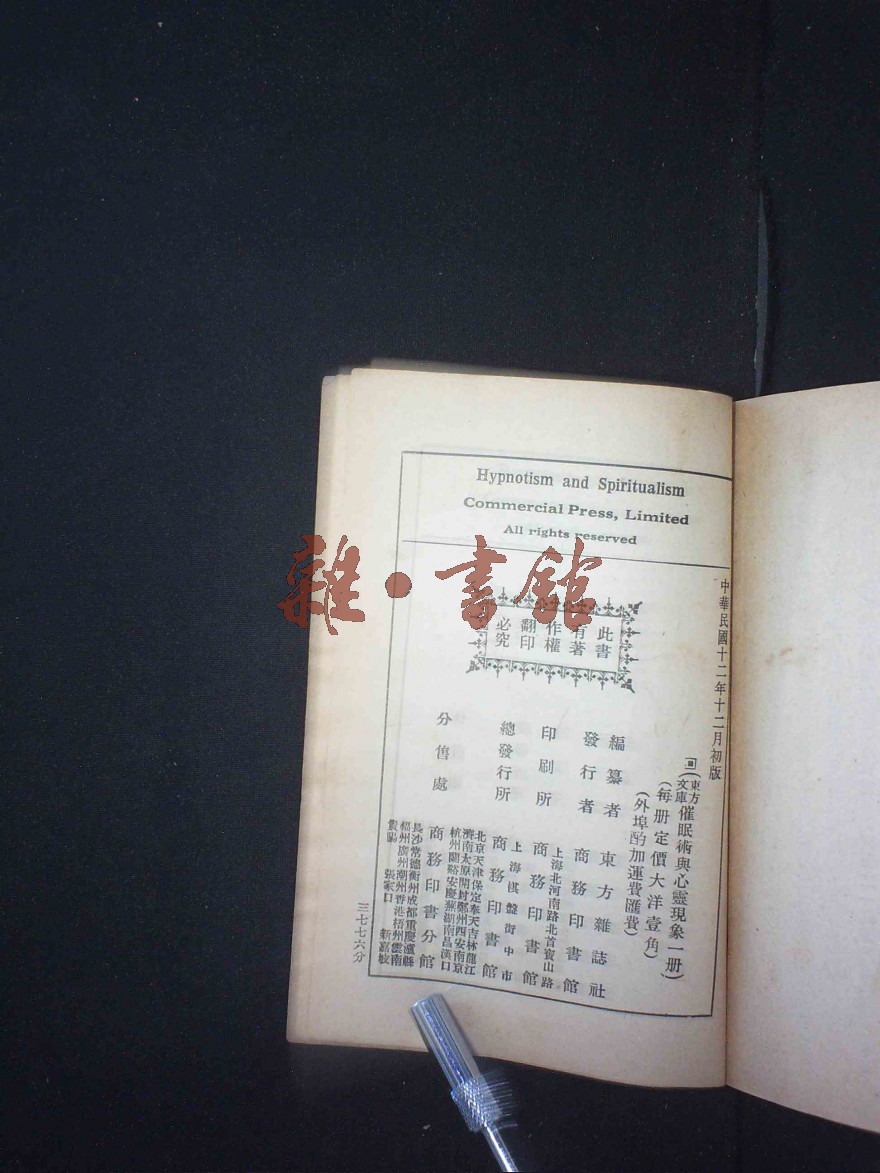 Hypnotism and Spiritualism
Commercial Press, Limited
All rights reserved
雜·書館
此書
有著
作權
翻印
必究
中華民國十二年十二月初版
(東方文庫)催眠術與心靈現象一册
(每册定價大洋壹角)
(外埠酌加運費匯費)
編纂者 東方雜誌社
發行者 商務印書館
印刷所 上海北河南路北首寶山路 商務印書館
總發行所 上海棋盤街中市 商務印書館
分售處 商務印書分館
北京天津保定奉天吉林龍江
濟南太原開封鄭州西安南京
杭州蘭谿安慶蕪湖南昌漢口
長沙常德衡州成都重慶瀘縣
福州廣州潮州香港梧州雲南
貴陽 張家口 新嘉坡
三七七六分